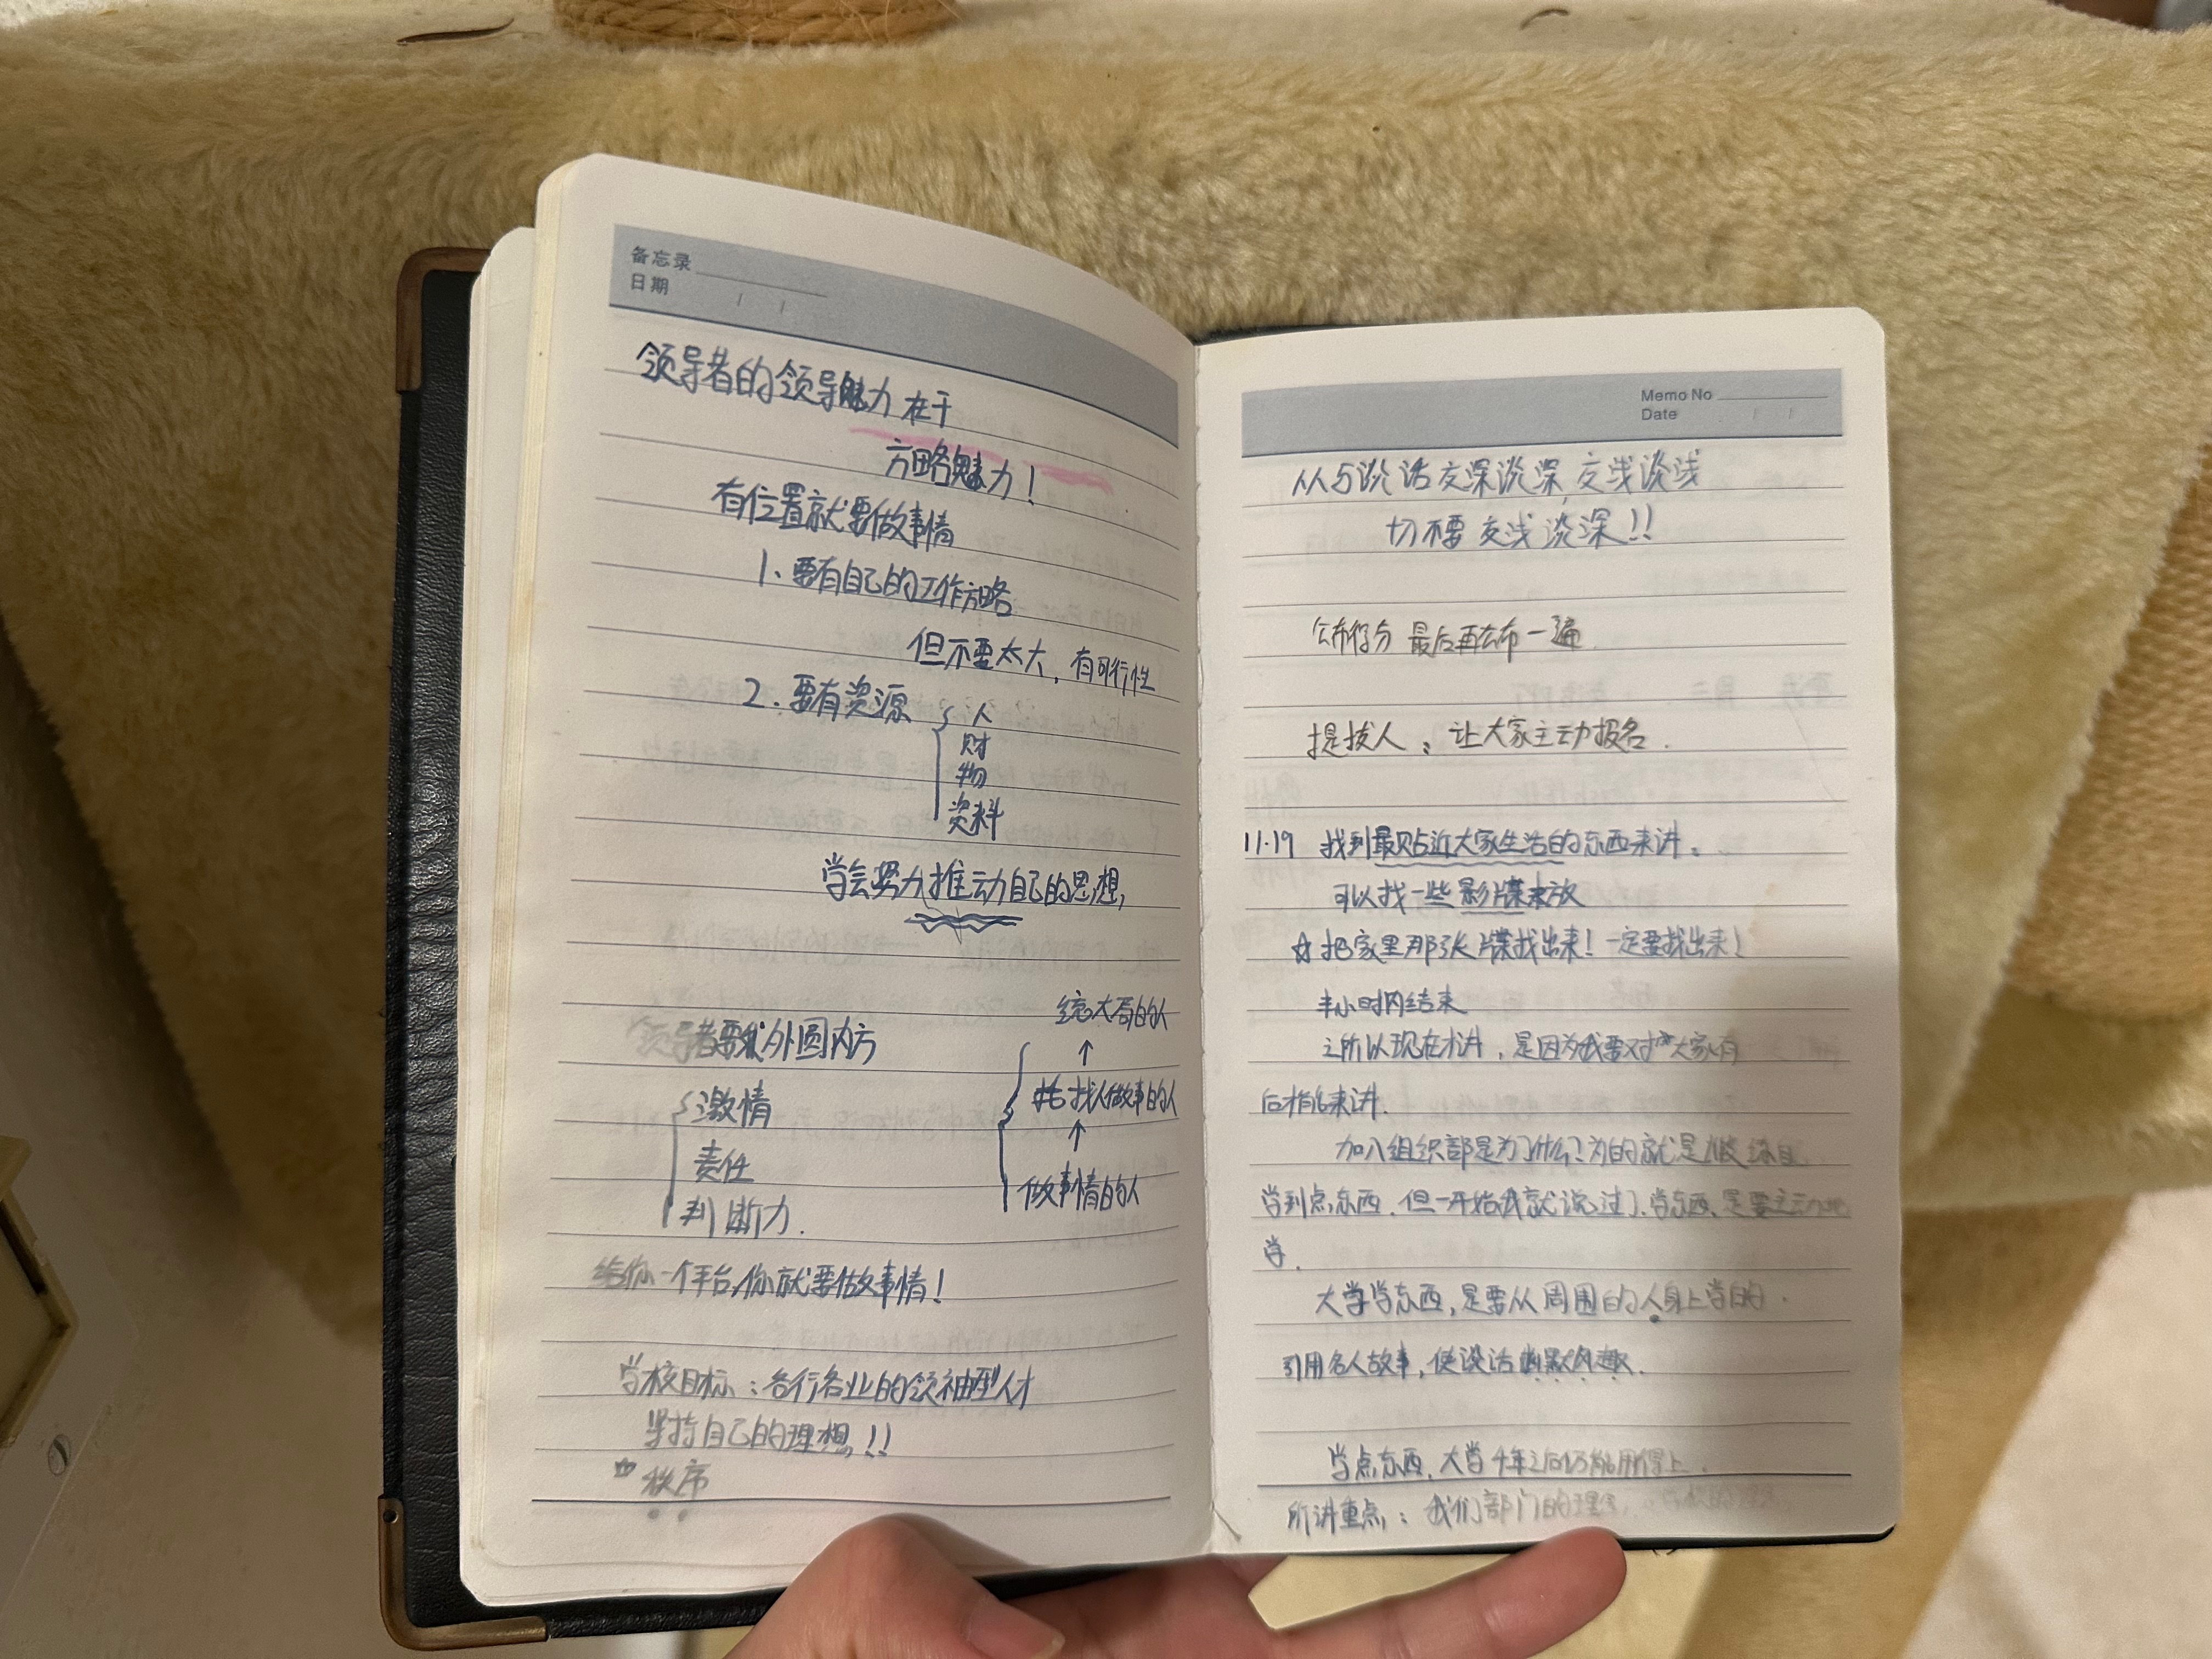 备忘录
日期 / /
领导者的领导魅力在于
方略魅力！
有位置就要做事情
1、要有自己的工作方略
但不要太大，有可行性
2．要有资源 { 人
财
物
资料
学会努力推动自己的思想，
领导者要 外圆内方
{ 激情
责任
判断力．
统大局的人
↑
找人做事的人
↑
做事情的人
给你一个平台，你就要做事情！
学校目标：各行各业的领袖型人才
坚持自己的理想！！
☆ 秩序
Memo No
Date / /
从与谈话交深谈深，交浅谈浅
切不要交浅谈深！！
公布得分 最后再公布一遍．
提拔人：让大家主动报名．
11.19 找到最贴近大家生活的东西来讲。
可以找一些影牒来放
☆ 把家里那张牒找出来！一定要找出来！
半小时内结束
之所以现在才讲，是因为我要对 大家有
后 才能来讲．
加入组织部是为了什么！为的就是
学到点东西．但一开始我就说过了．学东西，是要主动地
学．
大学学东西，是要从周围的人身上学的．
引用名人故事，使谈话幽默风趣．
学点东西，大学4年之后仍能用得上．
所讲重点：我们部门的理念，